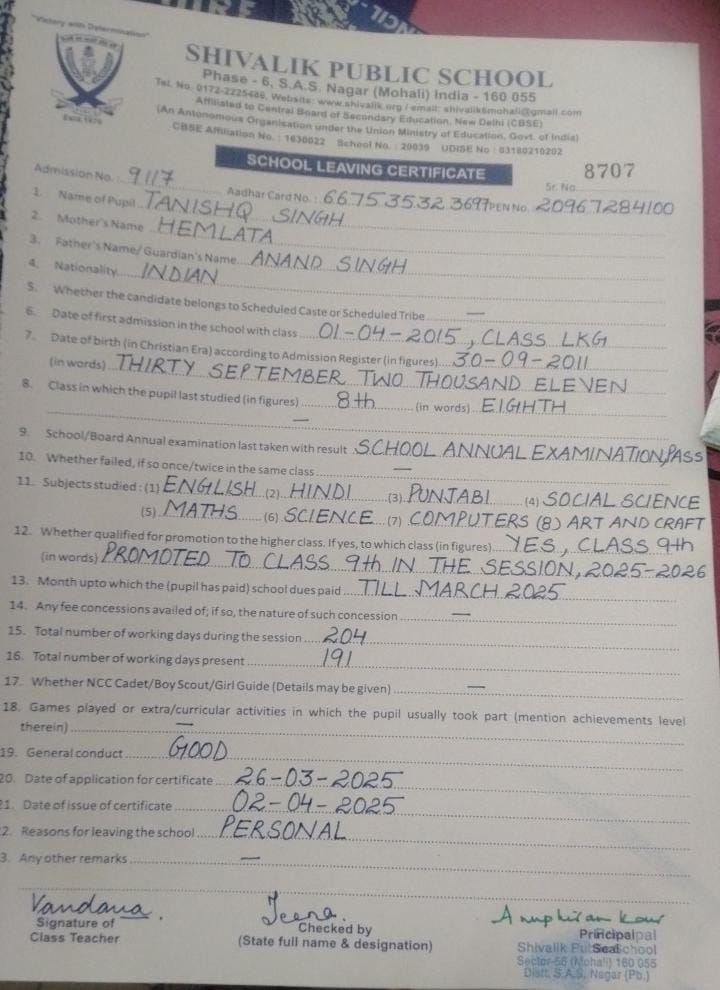 "Victory with Determination"
Estd. 1970
SHIVALIK PUBLIC SCHOOL
Phase - 6, S.A.S. Nagar (Mohali) India - 160 055
Tel. No. 0172-2225486, Website: www.shivalik.org / email: shivalik6mohali@gmail.com
Affiliated to Central Board of Secondary Education, New Delhi (CBSE)
(An Antonomous Organisation under the Union Ministry of Education, Govt. of India)
CBSE Affiliation No. : 1630022 School No. : 20039 UDISE No : 03180210202
SCHOOL LEAVING CERTIFICATE
Sr. No. 8707
Admission No. : 9117 Aadhar Card No. : 667535323697 PEN No. 20967284100
1. Name of Pupil TANISHQ SINGH
2. Mother's Name HEMLATA
3. Father's Name/ Guardian's Name ANAND SINGH
4. Nationality INDIAN
5. Whether the candidate belongs to Scheduled Caste or Scheduled Tribe —
6. Date of first admission in the school with class 01-04-2015, CLASS LKG
7. Date of birth (in Christian Era) according to Admission Register (in figures) 30-09-2011
(in words) THIRTY SEPTEMBER TWO THOUSAND ELEVEN
8. Class in which the pupil last studied (in figures) 8th (in words) EIGHTH
—
9. School/Board Annual examination last taken with result SCHOOL ANNUAL EXAMINATION, PASS
10. Whether failed, if so once/twice in the same class —
11. Subjects studied : (1) ENGLISH (2) HINDI (3) PUNJABI (4) SOCIAL SCIENCE
(5) MATHS (6) SCIENCE (7) COMPUTERS (8) ART AND CRAFT
12. Whether qualified for promotion to the higher class. If yes, to which class (in figures) YES, CLASS 9th
(in words) PROMOTED TO CLASS 9th IN THE SESSION, 2025-2026
13. Month upto which the (pupil has paid) school dues paid TILL MARCH 2025
14. Any fee concessions availed of; if so, the nature of such concession —
15. Total number of working days during the session 204
16. Total number of working days present 191
17. Whether NCC Cadet/Boy Scout/Girl Guide (Details may be given) —
18. Games played or extra/curricular activities in which the pupil usually took part (mention achievements level
therein) —
19. General conduct GOOD
20. Date of application for certificate 26-03-2025
21. Date of issue of certificate 02-04-2025
2. Reasons for leaving the school PERSONAL
3. Any other remarks —
Vandana. Jeena. Anuphiran Kaur
Signature of Checked by Principal
Class Teacher (State full name & designation) Seal
Principal
Shivalik Public School
Sector-56 (Mohali) 160 055
Distt. S.A.S. Nagar (Pb.)